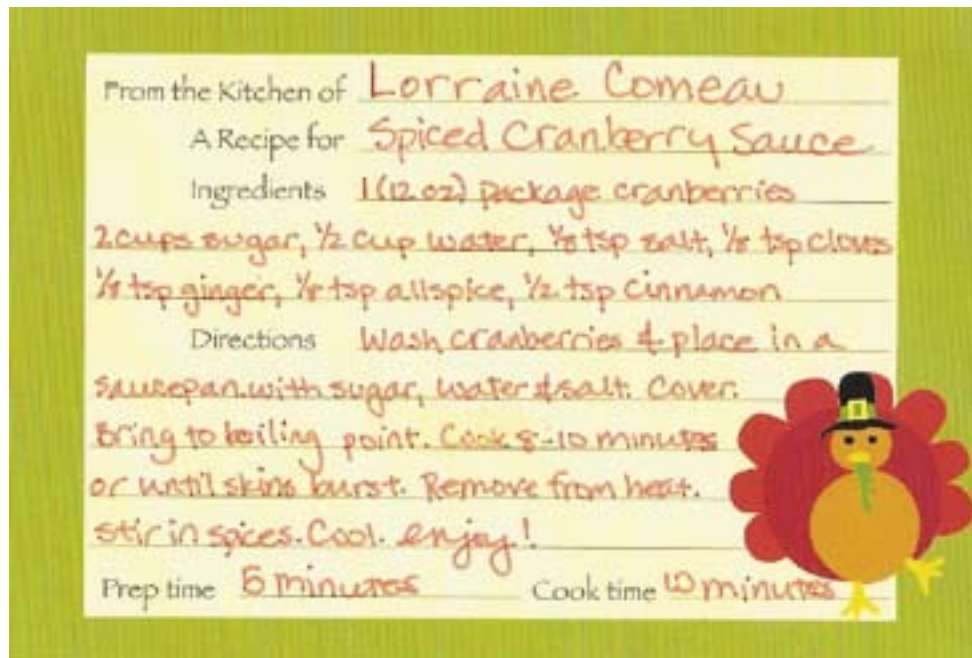 From the Kitchen of Lorraine Comeau
A Recipe for Spiced Cranberry Sauce
Ingredients 1 (12 oz) package cranberries
2 cups sugar, ½ cup water, ⅛ tsp salt, ⅛ tsp cloves
⅛ tsp ginger, ⅛ tsp allspice, ½ tsp cinnamon
Directions Wash cranberries & place in a
saucepan with sugar, water & salt. Cover.
Bring to boiling point. Cook 8-10 minutes
or until skins burst. Remove from heat.
stir in spices. Cool. enjoy!
Prep time 5 minutes Cook time 10 minutes